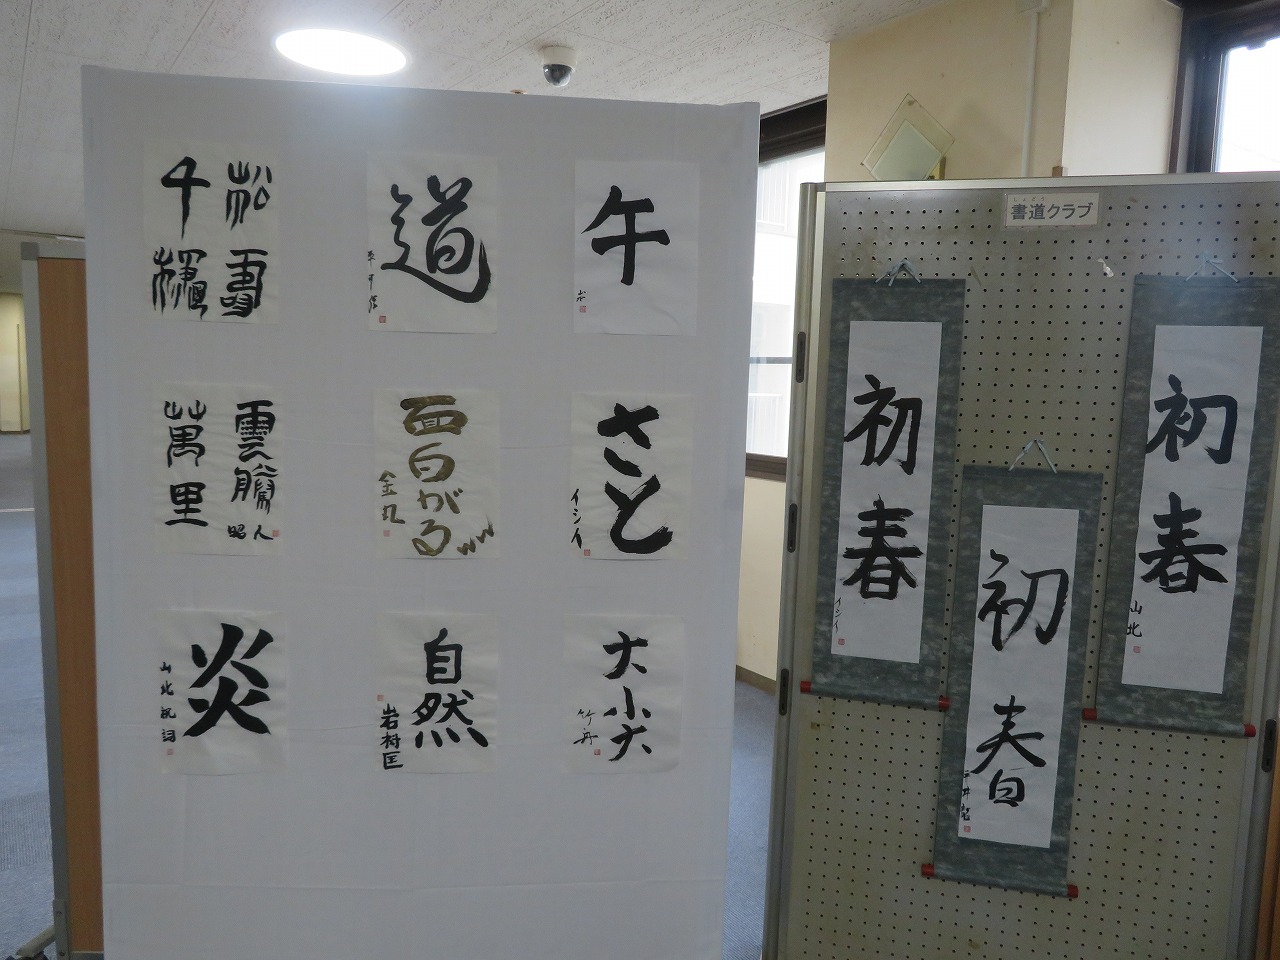 松雪
千穐
道
午
山本
雲騰
萬里
昭人
面白がる
金丸
さと
イシイ
炎
山北
自然
岩村匡
大小
竹舟
書道クラブ
しょどう
初春
イシイ
初春
初春
山北